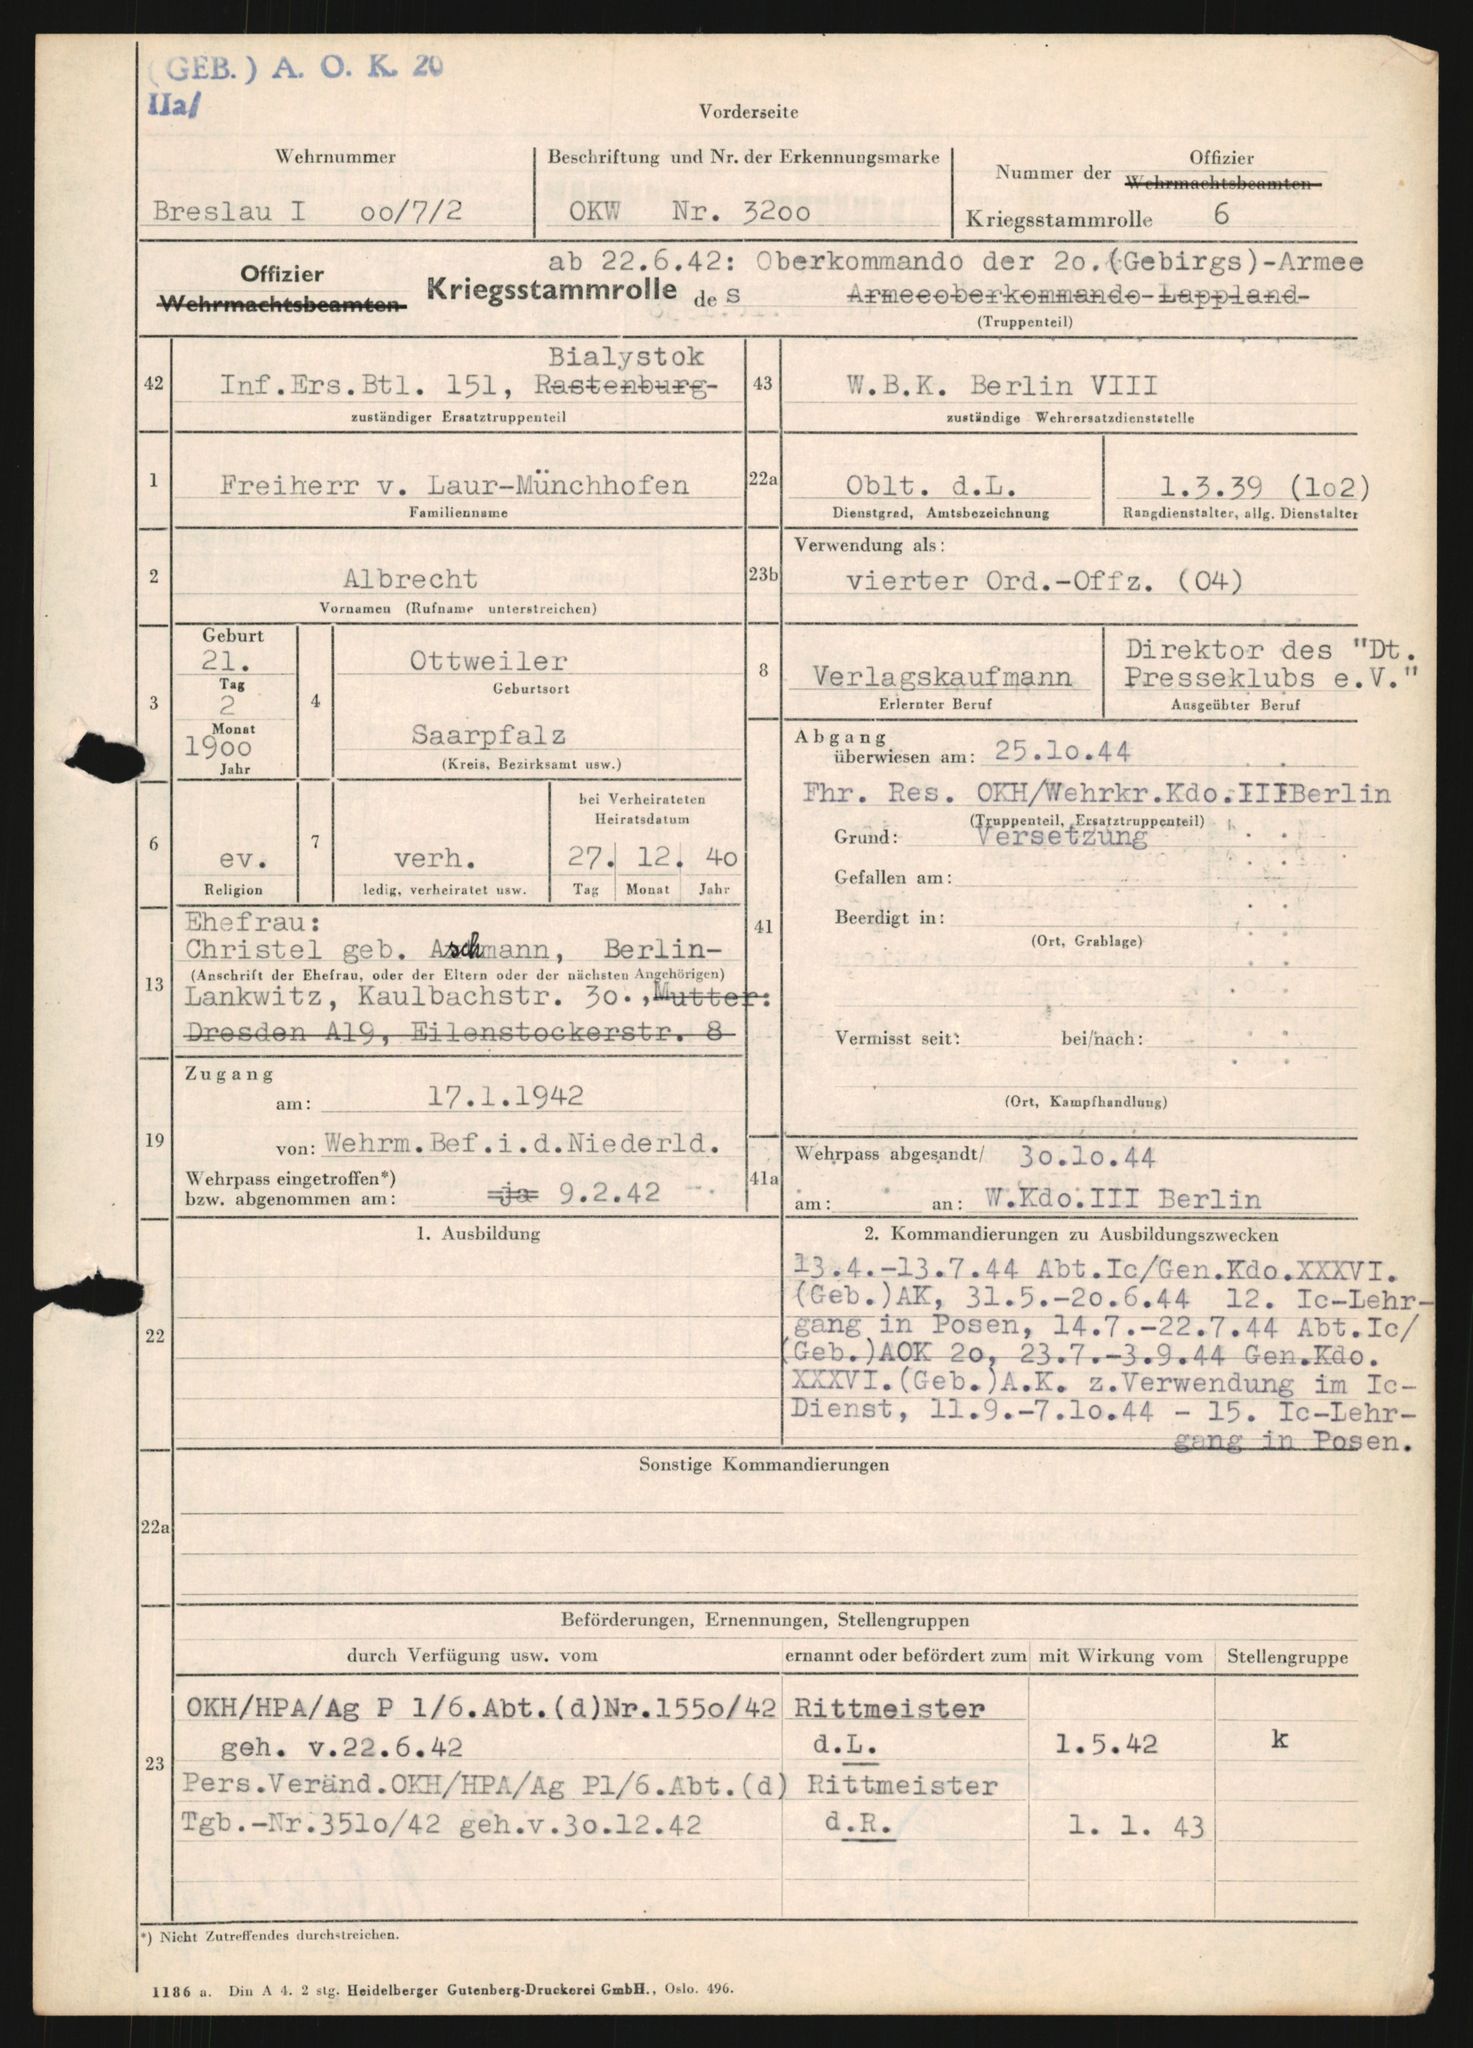 (GEB.) A. O. K. 20
IIa/
Vorderseite
Wehrnummer
Breslau I oo/7/2
Beschriftung und Nr. der Erkennungsmarke
OKW Nr. 32oo
Nummer der Offizier
Wehrmachtsbeamten
Kriegsstammrolle 6
ab 22.6.42: Oberkommando der 2o.(Gebirgs)-Armee
Offizier
Wehrmachtsbeamten Kriegsstammrolle des Armeeoberkommando Lappland
(Truppenteil)
42
Bialystok
Inf.Ers.Btl. 151, Rastenburg
zuständiger Ersatztruppenteil
43
W.B.K. Berlin VIII
zuständige Wehrersatzdienststelle
1
Freiherr v. Laur-Münchhofen
Familienname
22a
Oblt. d.L.
Dienstgrad, Amtsbezeichnung
1.3.39 (1o2)
Rangdienstalter, allg. Dienstalter
2
Albrecht
Vornamen (Rufname unterstreichen)
23b
Verwendung als:
vierter Ord.-Offz. (O4)
3
Geburt
21.
Tag
2
Monat
19oo
Jahr
4
Ottweiler
Geburtsort
Saarpfalz
(Kreis, Bezirksamt usw.)
8
Verlagskaufmann
Erlernter Beruf
Direktor des "Dt.
Presseklubs e.V."
Ausgeübter Beruf
6
ev.
Religion
7
verh.
ledig, verheiratet usw.
bei Verheirateten
Heiratsdatum
27. 12. 4o
Tag Monat Jahr
41
Abgang
überwiesen am: 25.1o.44
Fhr. Res. OKH/Wehrkr.Kdo.III Berlin
(Truppenteil, Ersatztruppenteil)
Grund: Versetzung
Gefallen am:
Beerdigt in:
(Ort, Grablage)
Vermisst seit: bei/nach:
(Ort, Kampfhandlung)
13
Ehefrau:
Christel geb. Aschmann, Berlin-
(Anschrift der Ehefrau, oder der Eltern oder der nächsten Angehörigen)
Lankwitz, Kaulbachstr. 3o., Mutter:
Dresden A19, Eilenstockerstr. 8
19
Zugang
am: 17.1.1942
von: Wehrm.Bef.i.d.Niederld.
Wehrpass eingetroffen*)
bzw. abgenommen am: ja 9.2.42
41a
Wehrpass abgesandt/ 3o.1o.44
am: an: W.Kdo.III Berlin
22
1. Ausbildung
2. Kommandierungen zu Ausbildungszwecken
13.4.-13.7.44 Abt.Ic/Gen.Kdo.XXXVI.
(Geb.)AK, 31.5.-2o.6.44 12. Ic-Lehr-
gang in Posen, 14.7.-22.7.44 Abt.Ic/
(Geb.)AOK 2o, 23.7.-3.9.44 Gen.Kdo.
XXXVI.(Geb.)A.K. z.Verwendung im Ic-
Dienst, 11.9.-7.1o.44 - 15. Ic-Lehr-
gang in Posen.
Sonstige Kommandierungen
22a
23
Beförderungen, Ernennungen, Stellengruppen
durch Verfügung usw. vom ernannt oder befördert zum mit Wirkung vom Stellengruppe
OKH/HPA/Ag P 1/6.Abt.(d)Nr.155o/42 Rittmeister
geh. v.22.6.42 d.L. 1.5.42 k
Pers.Veränd.OKH/HPA/Ag P1/6.Abt.(d) Rittmeister
Tgb.-Nr.351o/42 geh.v.3o.12.42 d.R. 1. 1. 43
*) Nicht Zutreffendes durchstreichen.
1186 a. Din A 4. 2 stg. Heidelberger Gutenberg-Druckerei GmbH., Oslo. 496.